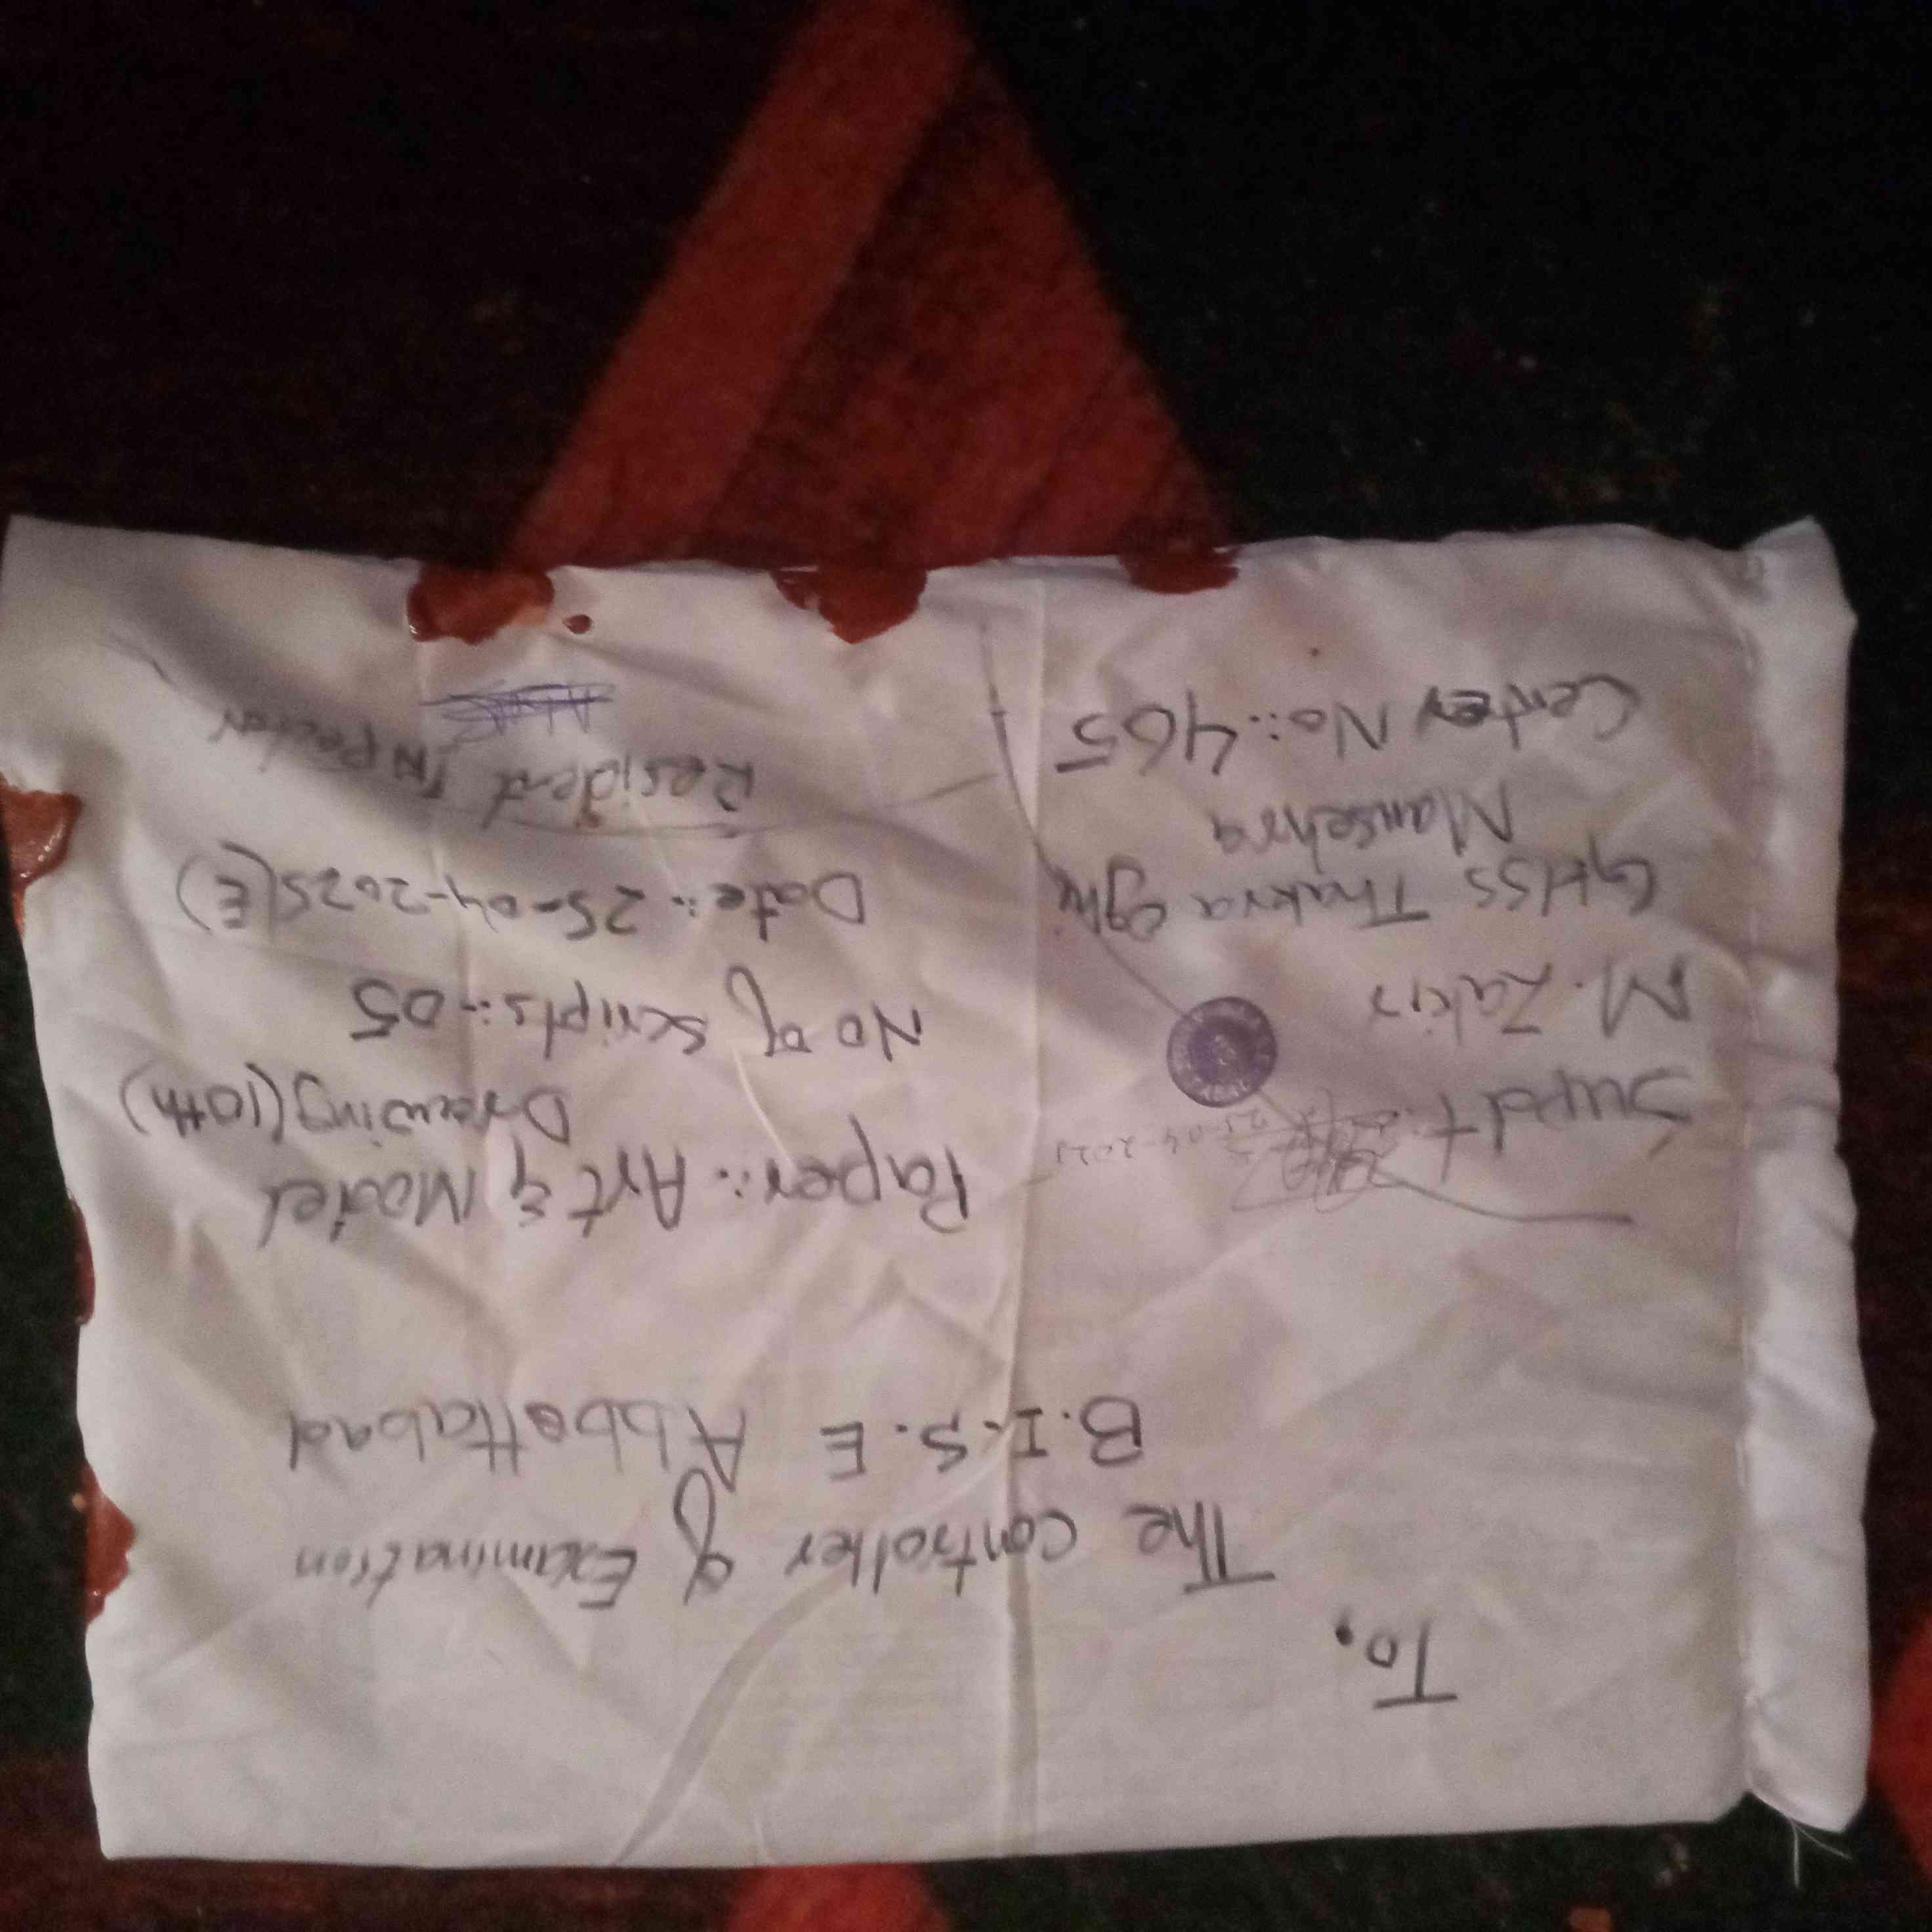 To,
The controller of Examination
B.I.S.E Abbottabad
Supdt:
25-04-2025
M. Zakir
GHSS Thakra
Mansehra
Center No:: 465
Paper:: Art & Model
Drawing (10th)
No of scripts:- 05
Date:: 25-04-2025(E)
Resident INPector